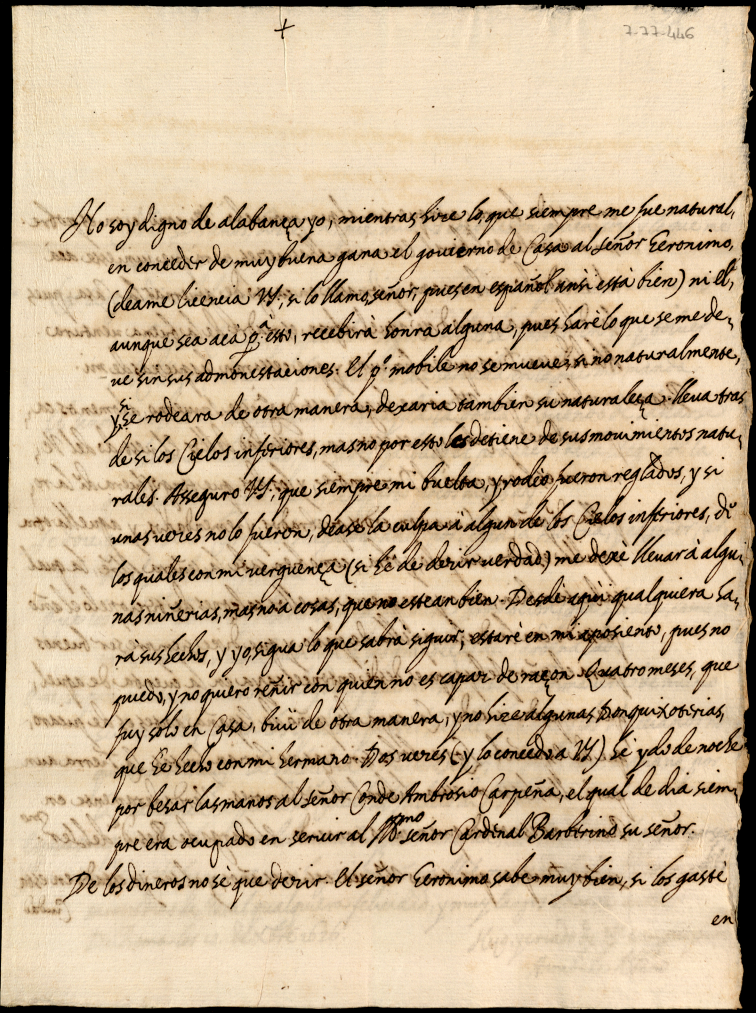 +
7-77-446
No soy digno de alabança yo, mientras hize lo que siempre me fue natural,
en conceder de muy buena gana el govierno de Casa al señor Geronimo,
(deame licencia VS, si lo llamo señor, pues en español ansi està bien) ni el,
aunque sea acà pª esto, recebirà honra alguna, pues harè lo que se me de-
ve sin sus admonestaciones. El pº mobile no se mueve, si no naturalmente,
y si se rodeara de otra manera, dexaria tambien su naturaleza. lleva tras
de si los Cielos inferiores, mas no por esto les detiene de sus movimientos natu-
rales. Asseguro VS, que siempre mi buelta, y rodeo fueron reglados, y si
unas vezes no lo fueron, dèase la culpa à algun de los Cielos inferiores, dè
los quales con mi verguença (si hè de dezir verdad) me dexè llevar à algu-
nas niñerias, mas no a cosas, que no estean bien. Desde aqui qualquiera ha-
rà sus hechos, y yo, sigua lo que sabrà siguir, estarè en mi aposiento, pues no
puedo, y no quiero reñir con quien no es capaz de razon. Quatro meses, que
fuy solo en Casa, bivì de otra manera, y no hize algunas Donquixoterias,
que hè hecho con mi hermano. Dos vezes (y lo concedo a VS) hè ydo de noche
por besar las manos al señor Conde Ambrosio Carpeña, el qual de dia siem-
pre era ocupado en servir al señor Cardinal Barberino su señor.
De los dineros no sè que dezir. El señor Geronimo sabe muy bien, si los gastè
en